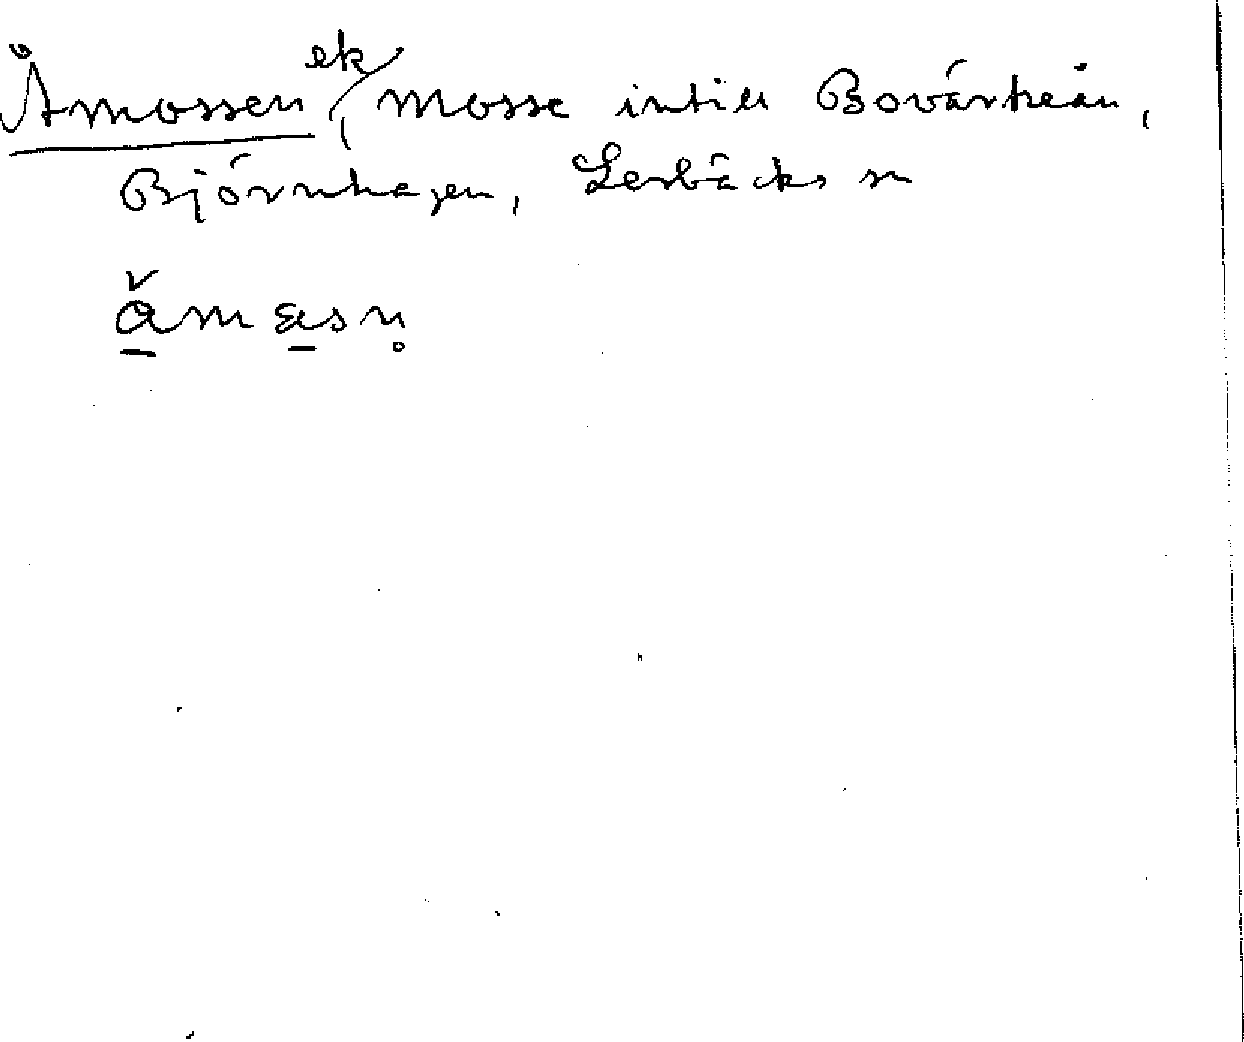 Åmossen ek, mosse intill Bovärkeån,
Björnhagen, Lerbäcks sn